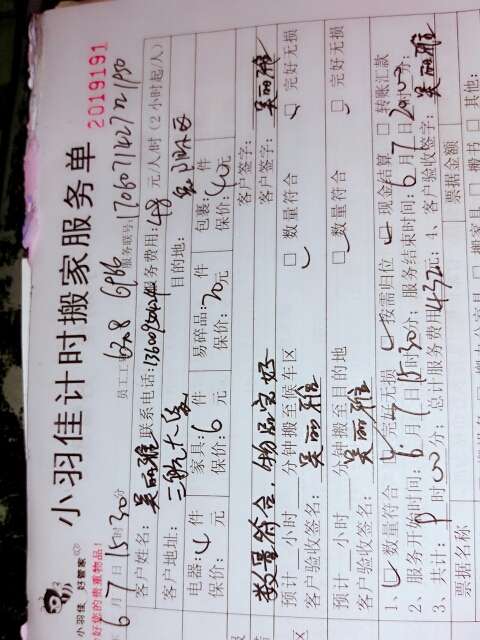 小羽佳 好管家
好您的贵重物品!
小羽佳计时搬家服务单
2019191
6月7日15时30分 员工工号 628 6986 服务联号: 170607142721190
客户姓名: 吴丽雅 联系电话: 服务费用: 48 元/人时(2小时起/人)
客户地址: 目的地:
电器: 4 件 家具: 6 件 易碎品: 件 包装: 件
保价: 元 保价: 元 保价: 20元 保价: 40元
客户签字:
数量符合,物品完好 客户签字: 吴丽雅
预计 小时 分钟搬至候车区 数量符合 完好无损
客户验收签名: 吴丽雅
预计 小时 分钟搬至目的地 数量符合 完好无损
客户验收签名: 吴丽雅
1、 数量符合 完好无损 按需归位 现金结算 转账汇款
2、服务开始时间: 6月7日15时30分; 服务结束时间: 6月7日20时 分;
3、共计: 时00分; 总计服务费用432元; 4、客户验收签字: 吴丽雅
票据名称 票据金额
搬家具 搬书 其他: